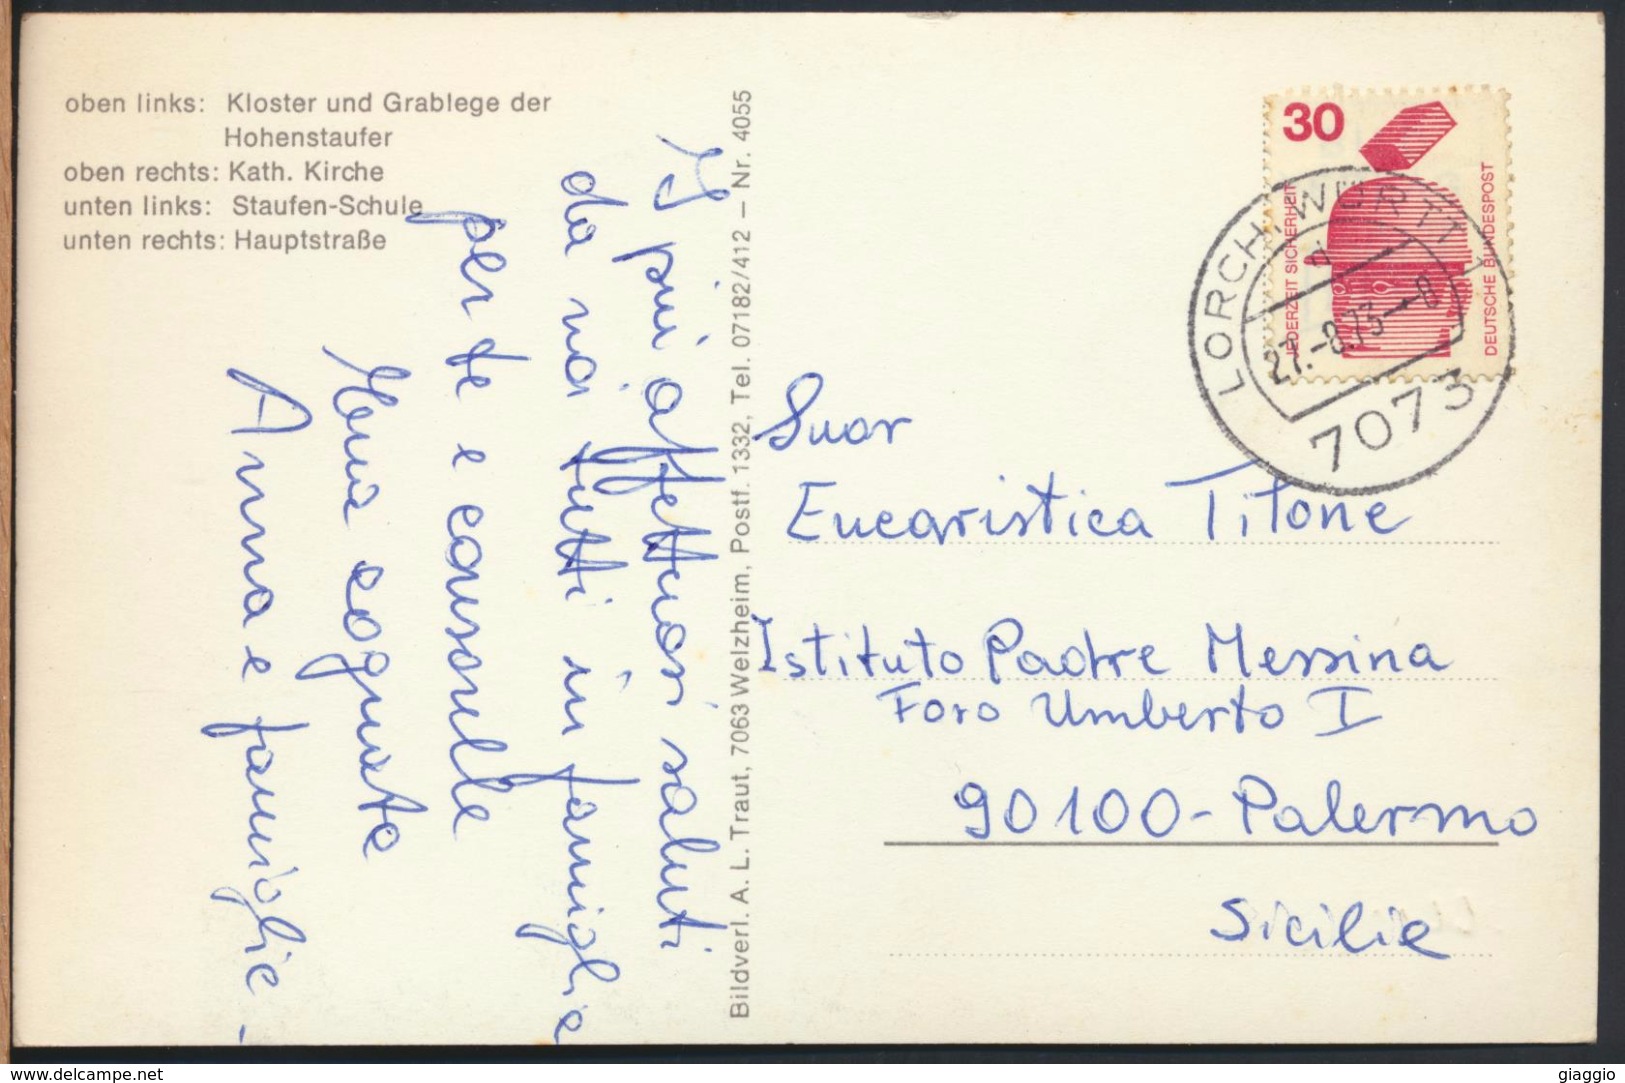 oben links: Kloster und Grablege der
Hohenstaufer
oben rechts: Kath. Kirche
unten links: Staufen-Schule
unten rechts: Hauptstraße
I più affettuosi saluti
da noi tutti in famiglia
per te e consorelle
tua cognata
Anna e famiglia.
Bildverl. A. L. Traut, 7063 Welzheim, Postf. 1332, Tel. 07182/412 – Nr. 4055
30
JEDERZEIT SICHERHEIT
DEUTSCHE BUNDESPOST
LORCH, WÜRTT 1
d
27.-8.73-8
7073
Suor
Eucaristica Titone
Istituto Padre Messina
Foro Umberto I
90100-Palermo
Sicilia
www.delcampe.net
giaggio